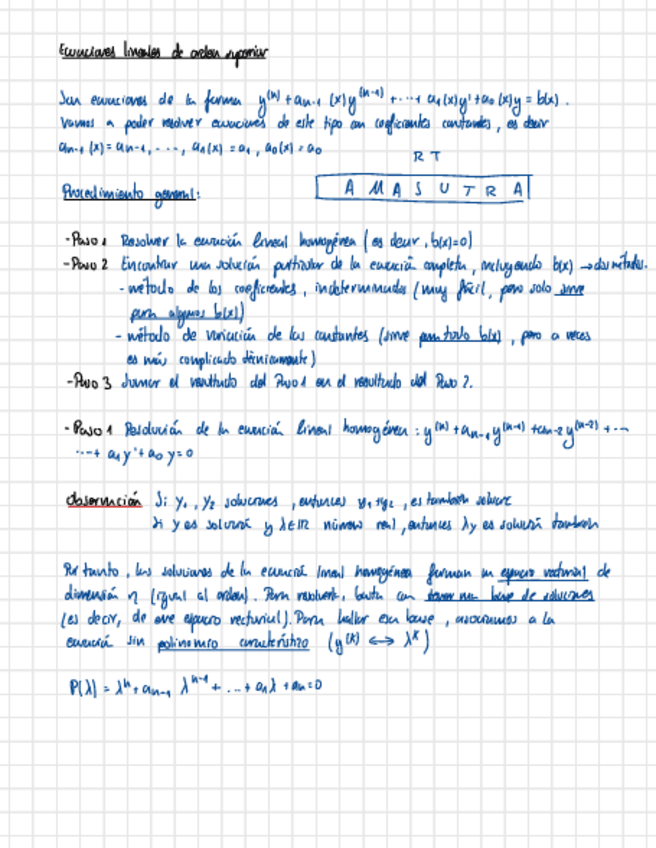 Ecuaciones lineales de orden superior
Son ecuaciones de la forma y⁽ⁿ⁾ + aₙ₋₁ (x) y⁽ⁿ⁻¹⁾ + ... + a₁(x)y' + a₀(x)y = b(x).
Vamos a poder resolver ecuaciones de este tipo con coeficientes constantes, es decir
aₙ₋₁(x) = aₙ₋₁, ..., a₁(x) = a₁, a₀(x) = a₀
R T
Procedimiento general:
A M A S U T R A
- Paso 1 Resolver la ecuación lineal homogénea (es decir, b(x)=0)
- Paso 2 Encontrar una solución particular de la ecuación completa, incluyendo b(x) → dos métodos.
- método de los coeficientes, indeterminados (muy fácil, pero solo sirve
para algunos b(x))
- método de variación de las constantes (sirve para todo b(x), pero a veces
es más complicado técnicamente)
- Paso 3 Sumar el resultado del Paso 1 con el resultado del Paso 2.
- Paso 1 Resolución de la ecuación lineal homogénea: y⁽ⁿ⁾ + aₙ₋₁ y⁽ⁿ⁻¹⁾ + aₙ₋₂ y⁽ⁿ⁻²⁾ + ...
... + a₁y' + a₀y = 0
Observación Si y₁, y₂ soluciones, entonces y₁+y₂, es también solución
Si y es solución y λ∈ℝ número real, entonces λy es solución también
Por tanto, las soluciones de la ecuación lineal homogénea forman un espacio vectorial de
dimensión n (igual al orden). Para resolverla, basta con una base de soluciones
(es decir, de ese espacio vectorial). Para hallar esa base, asociamos a la
ecuación su polinomio característico (y⁽ᵏ⁾ ↔ λᵏ)
P(λ) = λⁿ + aₙ₋₁ λⁿ⁻¹ + ... + a₁λ + aₙ = 0